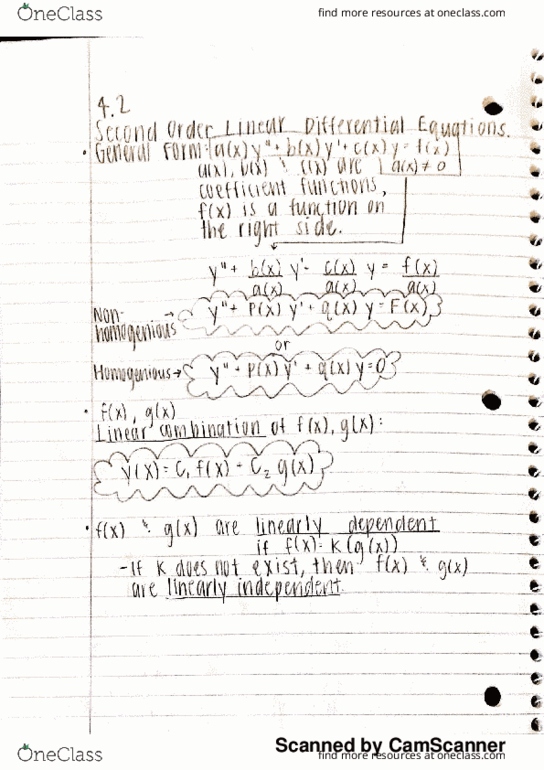 OneClass
find more resources at oneclass.com
4.2
Second Order Linear Differential Equations.
• General form: a(x)y" + b(x)y' + c(x)y = f(x)
a(x), b(x) & c(x) are a(x) ≠ 0
coefficient functions,
f(x) is a function on
the right side.
y" + b(x)/a(x) y' - c(x)/a(x) y = f(x)/a(x)
Non-homogenious → y" + P(x) y' + q(x) y = F(x)
or
Homogenious → y" + P(x) y' + q(x) y = 0
• f(x), g(x)
Linear combination of f(x), g(x):
y(x) = C₁ f(x) + C₂ g(x)
• f(x) & g(x) are linearly dependent
if f(x) = K(g(x))
- If K does not exist, then f(x) & g(x)
are linearly independent.
Scanned by CamScanner
OneClass
find more resources at oneclass.com